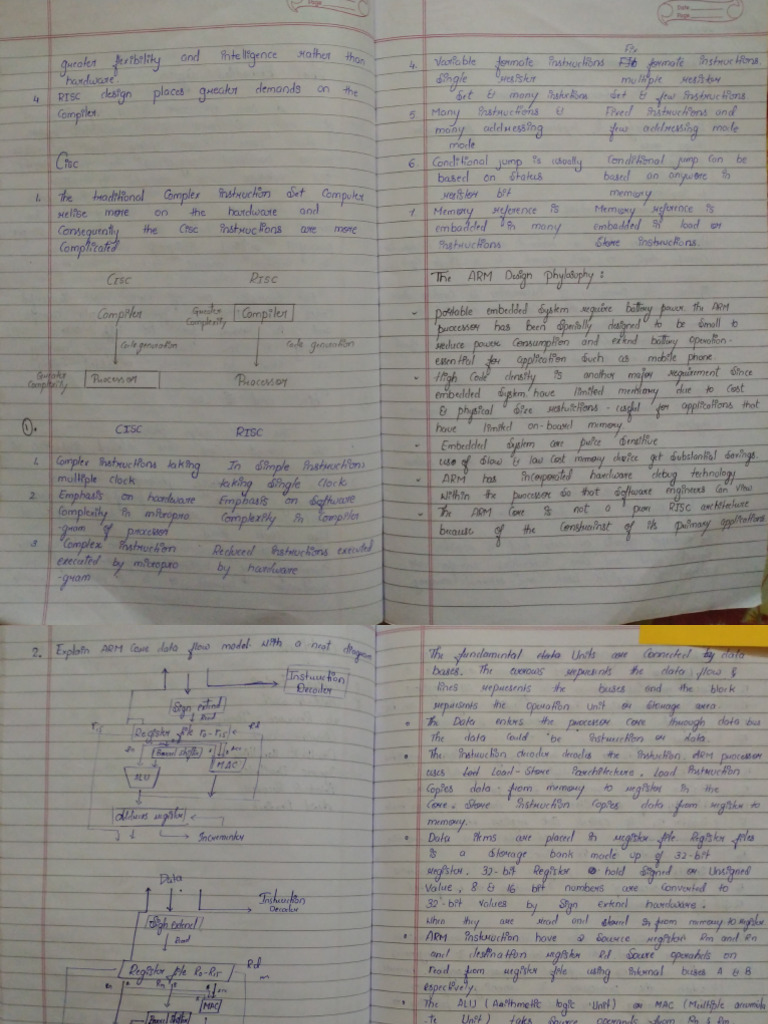 greater flexibility and intelligence rather than
hardware.
4 RISC design places greater demands on the
Compiler.
Cisc
1. The traditional Complex instruction Set Computer
relise more on the hardware and
Consequently the Cisc instructions are more
Complicated
CISC RISC
Compiler Greater Complexity Compiler
Code generation Code generation
Greater Complexity Processor Processor
1. CISC RISC
1. Complex instructions taking In Simple instructions
multiple clock taking Single clock
2. Emphasis on hardware Emphasis on Software
Complexity in micropro Complexity in Compiler
-gram of processor
3 Complex instruction Reduced instructions executed
executed by micropro by hardware
-gram
Fix
4. Variable formate instructions formate instructions.
Single resister multiple resister
Set & many instructions Set & few instructions
5 Many instructions & Fixed instructions and
many addressing few addressing mode
mode
6 Conditional jump is usually Conditional jump can be
based on status based on anyware in
register bit memory.
7 Memory reference is Memory reference is
embedded in many embedded in load or
instructions Store instructions.
The ARM Design Phylosophy :
- portable embedded System require battery power. the ARM
processor has been specially designed to be Small to
reduce power Consumption and extend battery operation-
essential for application Such as mobile phone.
- High Code density is another major requirement Since
embedded System have limited memory due to Cost
& physical Size restrictions - useful for applications that
have limited on-board memory
- Embedded System are price Sensitive
use of Slow & low Cost memory device get Substantial Savings.
- ARM has incorporated hardware debug technology
within the processor so that Software engineers can view
- The ARM Core is not a pure RISC architecture
because of the Constrainst of its primary applications
2. Explain ARM Core data flow model with a neat diagram
Instruction
Decoder
Sign extend
Read
r15 Register file r0-r15 Rd
Barrel Shifter
ALU MAC
Address register
Incrementer
Data
Instruction
Decoder
Sign extend
Read
Register file R0-R15 Rd
Rm
MAC
Barrel Shifter
The fundamental data Units are Connected by data
bases. The arrows represents the data flow &
lines represents the buses and the block
represents the operation Unit or Storage area
• The Data enters the processor Core through data bus
The data could be instruction or data.
• The instruction decoder decodes the instuction. ARM processor
uses Load-Store architecture. Load Instruction
Copies data from memory to register in the
Core. Store instruction Copies data from register to
memory.
• Data items are placed in register file Register files
is a Storage bank made up of 32-bit
register. 32-bit Register hold Signed or Unsigned
Value, 8 & 16 bit numbers are Converted to
32-bit values by Sign extend hardware.
when they are read and stored in from memory to register
• ARM instruction have 2 Source register Rm and Rn
and destination register Rd Source operands on
read from register file using internal buses A & B
respectively.
• The ALU (Arithmetic logic Unit) or MAC (Multiple accumula
te Unit) takes Source operands from Rn & Rm